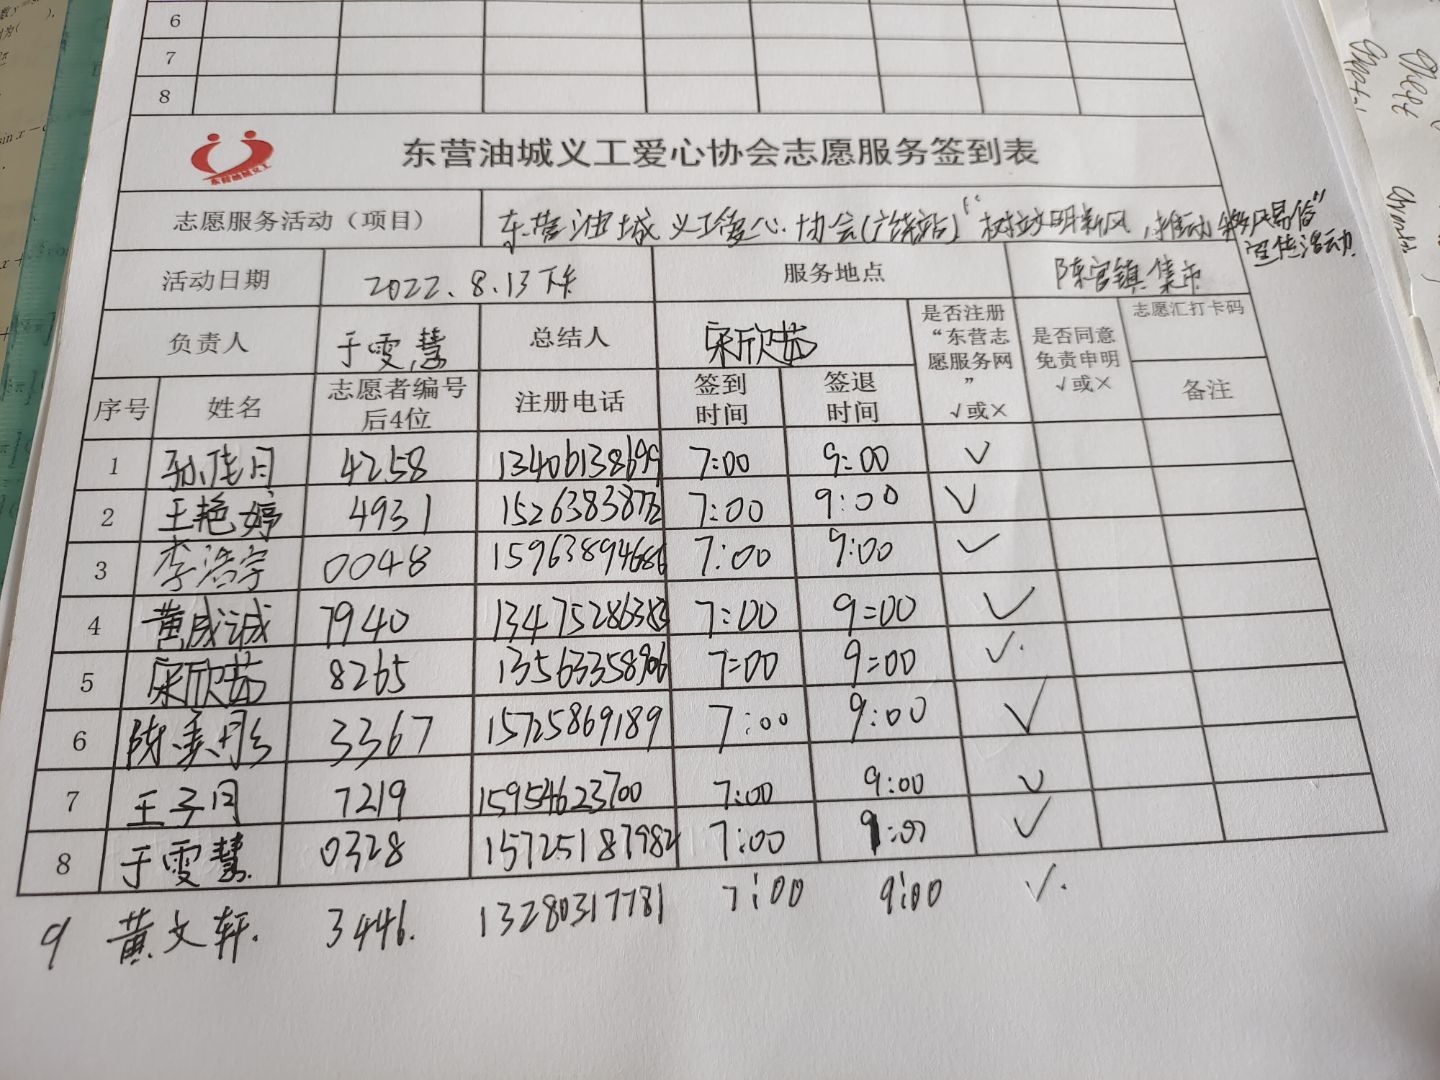 6
7
8
东营油城义工
东营油城义工爱心协会志愿服务签到表
志愿服务活动（项目） 东营油城义工爱心协会(广饶站)“树立文明新风，推动移风易俗”
宣传活动
活动日期 2022.8.13下午 服务地点 陈官镇集市
负责人 于雯慧 总结人 宋欣茹 是否注册“东营志愿服务网” √或× 是否同意免责申明 √或× 志愿汇打卡码
序号 姓名 志愿者编号后4位 注册电话 签到时间 签退时间 备注
1 孙佳月 4258 13406138699 7:00 9:00 √
2 王艳婷 4931 15263838772 7:00 9:00 √
3 李浩宇 0048 15963894686 7:00 9:00 √
4 黄成诚 7940 13475286383 7:00 9:00 √
5 宋欣茹 8265 13563358906 7:00 9:00 √
6 3367 15725869189 7:00 9:00 √
7 王子月 7219 15954623700 7:00 9:00 √
8 于雯慧 0328 15725187982 7:00 9:00 √
9 黄文轩. 3446. 13280317781 7:00 9:00 √.